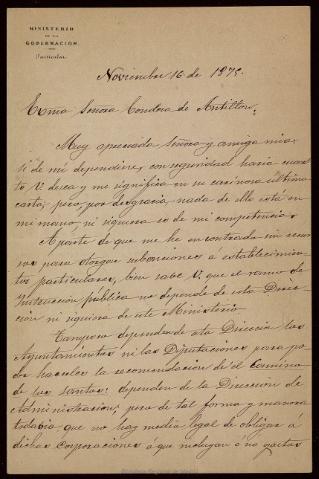 MINISTERIO
DE LA
GOBERNACION.
Particular
Noviembre 16 de 1875.
Exma Señora Condesa de Antillon.
Muy apreciada Señora y amiga mia:
si de mí dependiere, con seguridad haria cuan
to V. desea y me significa en su cariñosa última
carta; pero, por desgracia, nada de ello está en
mi mano, ni siquiera es de mi competencia.
Aparte de que me he encontrado sin recur
sos para otorgar subvenciones á establecimien
tos particulares, bien sabe V. que el ramo de
Instruccion pública no depende de esta Direc
cion ni siquiera de este Ministerio.
Tampoco dependen de esta Direccion los
Ayuntamientos ni las Diputaciones para po
der hacerles la recomendacion de el Camino
de los santos: dependen de la Direccion de
Administracion; pero de tal forma y manera
todavia que no hay medio legal de obligar á
dichas corporaciones á que incluyan ó no gastos